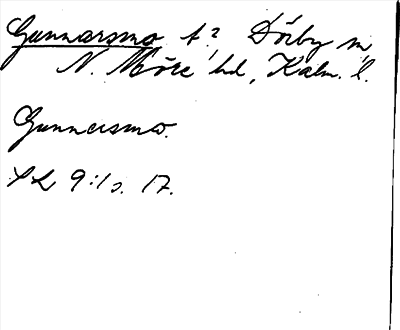 Gunnarsmo t? Dörby sn,
N. Möre hd, Kalm. l.
Gunnarsmo.
SL 9:1 s. 17.